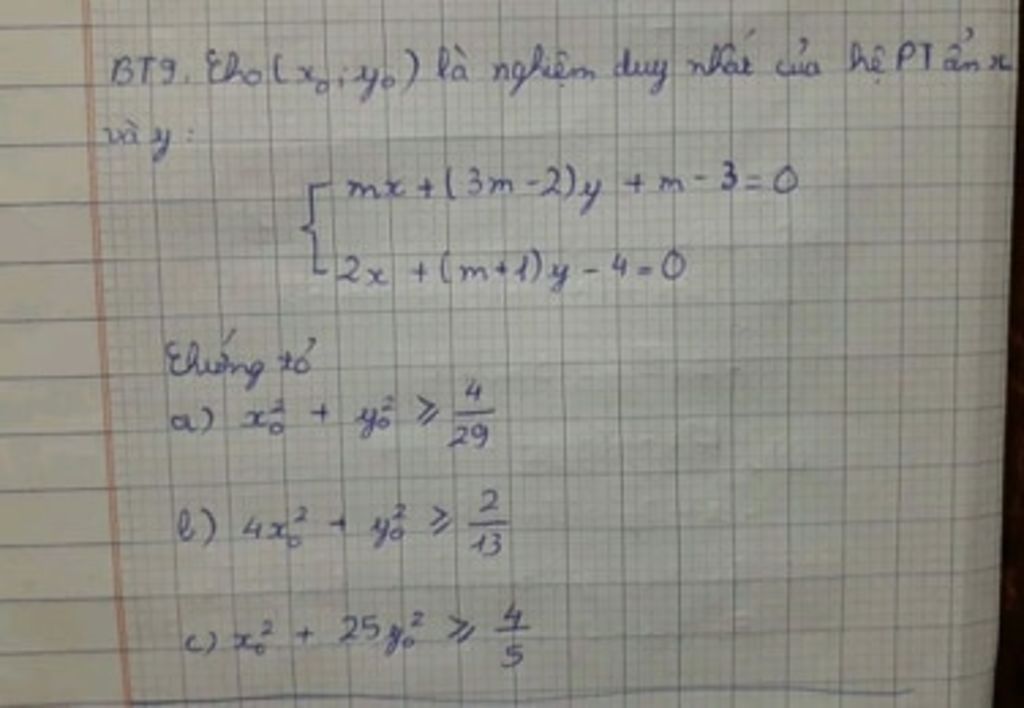 BT9. Cho (x₀; y₀) là nghiệm duy nhất của hệ PT ẩn x
và y:
mx + (3m - 2)y + m - 3 = 0
2x + (m+1)y - 4 = 0
Chứng tỏ
a) x₀² + y₀² ⩾ 4/29
b) 4x₀² + y₀² ⩾ 2/13
c) x₀² + 25y₀² ⩾ 4/5